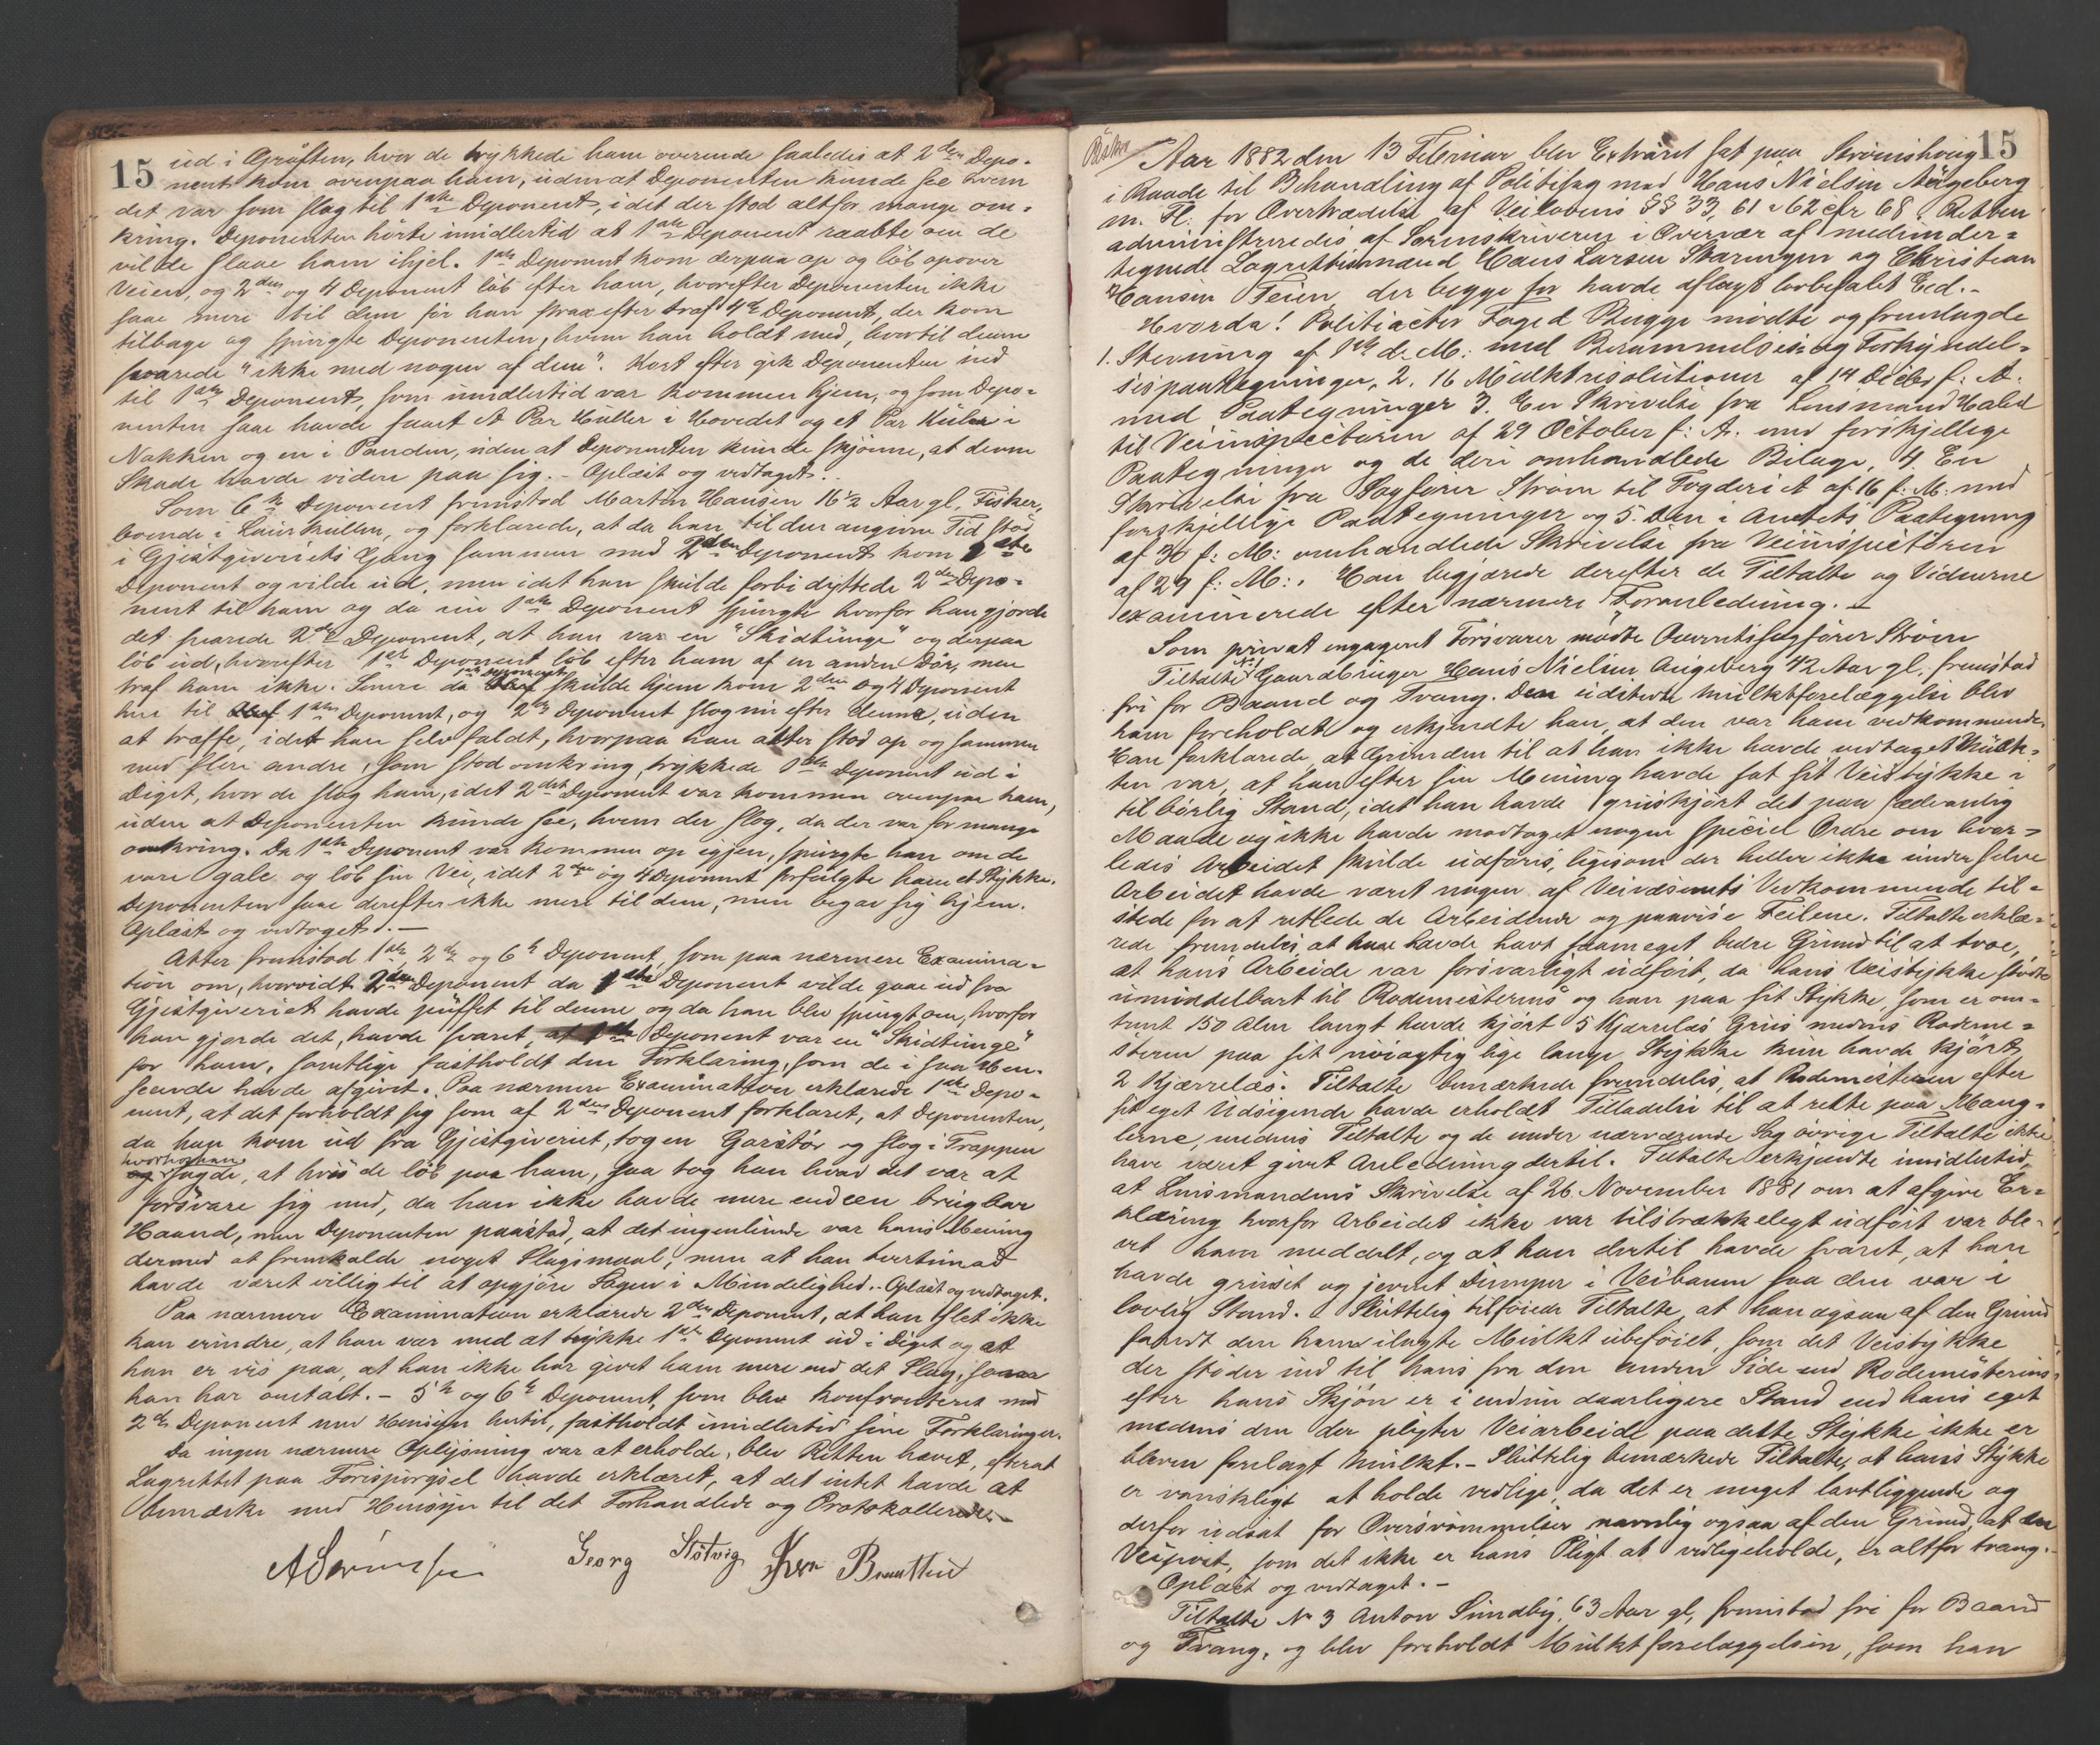 15
ud i Grøften, hvor de trykkede ham overende saaledes at 2den Depo-
nent kom ovenpaa ham, uden at Deponenten kunde see hvem
det var som slog til 1ste Deponent, idet der stod altfor mange om-
kring. Deponenten hørte imidlertid at 1ste Deponent raabte om de
vilde slaae ham ihjel. 1ste Deponent kom derpaa op og løb opover
Veien, og 2den og 4 Deponent løb efter ham, hvorefter Deponenten ikke
saae mere til dem før han strax efter traf 4de Deponent, der kom
tilbage og spurgte Deponenten, hvem han holdt med, hvortil denne
svarede "ikke med nogen af dem". Kort efter gik Deponenten ned
til 1ste Deponent, som imidlertid var kommen hjem, og som Depo-
nenten saae havde faaet et Par Huller i Hovedet og et Par Kuler i
Nakken og en i Panden, uden at Deponenten kunde skjønne, at denne
Skade havde videre paa sig. - Oplæst og vedtaget. -
Som 6te Deponent fremstod Martin Hansen 16½ Aar gl, Fisker,
boende i Lauerkullen, og forklarede, at da han til den angivne Tid stod
i Gjestgiveriets Gang sammen med 2den Deponent kom 1ste
Deponent og vilde ud, men idet han skulde forbi dyttede 2den Depo-
nent til ham og da nu 1ste Deponent spurgte hvorfor han gjorde
det svarede 2den Deponent, at han var en "Skidtunge" og derpaa
løb ud, hvorefter 1ste Deponent løb efter ham af en anden Dør, men
traf ham ikke. Senere da 1ste Deponent skulde hjem kom 2den og 4 Deponent
hen til 1ste Deponent, og 2den Deponent slog nu efter denne, uden
at træffe, idet han selv faldt, hvorpaa han atter stod op og sammen
med flere andre, som stod omkring, trykkede 1ste Deponent ud i
Diget, hvor de slog ham, idet 2det Deponent var kommen ovenpaa ham,
uden at Deponenten kunde see, hvem der slog, da der var for mange
omkring. Da 1ste Deponent var kommen op igjen, spurgte han om de
vare gale og løb sin Vei, idet 2den og 4 Deponent forfulgte ham et Stykke.
Deponenten saae derefter ikke mere til dem, men begav sig hjem.
Oplæst og vedtaget. -
Atter fremstod 1ste, 2de og 6te Deponent, som paa nærmere Examina-
tion om, hvorvidt 2den Deponent da 1ste Deponent vilde gaae ud fra
Gjestgiveriet havde puffet til denne og da han blev spurgt om, hvorfor
han gjorde det, havde svaret, at 1ste Deponent var en "Skidtunge"
for ham, samtlige fastholdt den Forklaring, som de i saa Hen-
seende havde afgivet. Paa nærmere Examination erklærede 1ste Depo-
nent, at det forholdt sig som af 2den Deponent forklaret, at Deponenten,
da han kom ud fra Gjestgiveriet, tog en Garstør og slog i Trappen
hvorhos han
og sagde, at hvis de løb paa ham, saa tog han hvad det var at
forsvare sig med, da han ikke havde mere end een brugbar
Haand, men Deponenten paastod, at det ingenlunde var hans Mening
dermed at fremkalde noget Slagsmaal, men at han tvertimod
havde været villig til at opgjøre Sagen i Mindelighed. - Oplæst og vedtaget.
Paa nærmere Examination erklærede 2den Deponent, at han slet ikke
kan erindre, at han var med at trykke 1ste Deponent ud i Diget og at
han er vis paa, at han ikke har givet ham mere end det Slag, som
han har omtalt. - 5te og 6te Deponent, som blev konfronteret med
2den Deponent med Hensyn hertil, fastholdt imidlertid sine Forklaringer.
Da ingen nærmere Oplysning var at erholde, blev Retten hævet, efterat
Lagrettet paa Forespørgsel havde erklæret, at det intet havde at
bemærke med Hensyn til det Forhandlede og Protokollerede. -
A Sørensen Georg Støtvig
15
Aar 1882 den 13 Februar blev Extraret sat paa Strømshoug
i Raade til Behandling af Politisag mod Hans Nielsen Augeberg
m. Fl: for Overtrædelse af Veilovens §§ 33, 61 & 62 cfr 68. Retten
administreredes af Sorenskriveren i Overvær af medunder-
tegnede Lagrettesmænd Hans Larsen Skaningen og Christian
Hansen Feien, der begge før havde aflagt lovbefalet Eed. -
Hvorda! Politiactor Foged Bugge mødte og fremlagde
1. Stevning af 1ste d: M: med Berammelses- og Forkyndel-
sespaategninger, 2. 16 Mulktresolutioner af 14 Decbr f: A:
med Paategninger 3. En Skrivelse fra Lensmand Haled
til Veiinspecteuren af 29 October f: A. med forskjellige
Paategninger og de deri omhandlede Bilage, 4. En
Skrivelse fra Sagfører Strøm til Fogderiet af 16 f: M: med
forskjellige Paategninger og 5. Den i Amtets Paategning
af 30 f: M: omhandlede Skrivelse fra Veiinspectøren
af 29 f: M:. Han begjærede derefter de Tiltalte og Vidnerne
examinerede efter nærmere Foranledning. -
Som privat engageret Forsvarer mødte Overretssagfører Strøm
Tiltalte N 1 Gaardbruger Hans Nielsen Augeberg 42 Aar gl, fremstod
fri for Baand og Tvang. Den udstedte Mulktforelæggelse blev
ham foreholdt og erkjendte han, at den var ham vedkommende.
Han forklarede, at Grunden til at han ikke havde vedtaget Mulk-
ten var, at han efter sin Mening havde sat sit Veistykke i
tilbørlig Stand, idet han havde gruskjørt det paa sædvanlig
Maade og ikke havde modtaget nogen speciel Ordre om hvor-
ledes Arbeidet skulde udføres, ligesom der heller ikke under selve
Arbeidet havde været nogen af Veivæsenets Vedkommende til-
stede for at retlede de Arbeidende og paavise Feilene. Tiltalte erklæ-
rede fremdeles at han havde havt saameget bedre Grund til at troe,
at hans Arbeide var forsvarligt udført, da hans Veistykke stødte
umiddelbart til Rodemesterens og han paa sit Stykke, som er om-
trent 150 Alen langt havde kjørt 5 Kjærrelæs Grus medens Rodeme-
steren paa sit nøiagtig lige lange Stykke kun havde kjørt
2 Kjærrelæs. Tiltalte bemærkede fremdeles, at Rodemesteren efter
sit eget Udsigende havde erholdt Tilladelse til at rette paa Mang-
lerne, medens Tiltalte og de under nærværende Sag øvrige Tiltalte ikke
have været givet Anledning dertil. Tiltalte erkjendte imidlertid,
at Lensmandens Skrivelse af 26 November 1881 om at afgive Er-
klæring hvorfor Arbeidet ikke var tilstrækkeligt udført var ble-
vet ham meddelt, og at han dertil havde svaret, at han
havde gruset og jevnet Dumper i Veibanen saa den var i
lovlig Stand. Sluttelig tilføiede Tiltalte, at han ogsaa af den Grund
fandt den ham ilagte Mulkt ubeføiet, som det Veistykke
der støder ind til hans fra den anden Side end Rodemesterens,
efter hans Skjøn er i endnu daarligere Stand end hans eget
medens den der pligter Veiarbeide paa dette Stykke ikke er
bleven forelagt Mulkt. - Sluttelig bemærkede Tiltalte, at hans Stykke
er vanskeligt at holde vedlige, da det er meget lavtliggende og
derfor udsat for Oversvømmelser navnlig ogsaa af den Grund, at en
Veipost, som det ikke er hans Pligt at vedligeholde, er altfor trang. -
Oplæst og vedtaget. -
Tiltalte N 3 Anton Sundby, 63 Aar gl, fremstod fri for Baand
og Tvang, og blev foreholdt Mulktforelæggelsen, som han